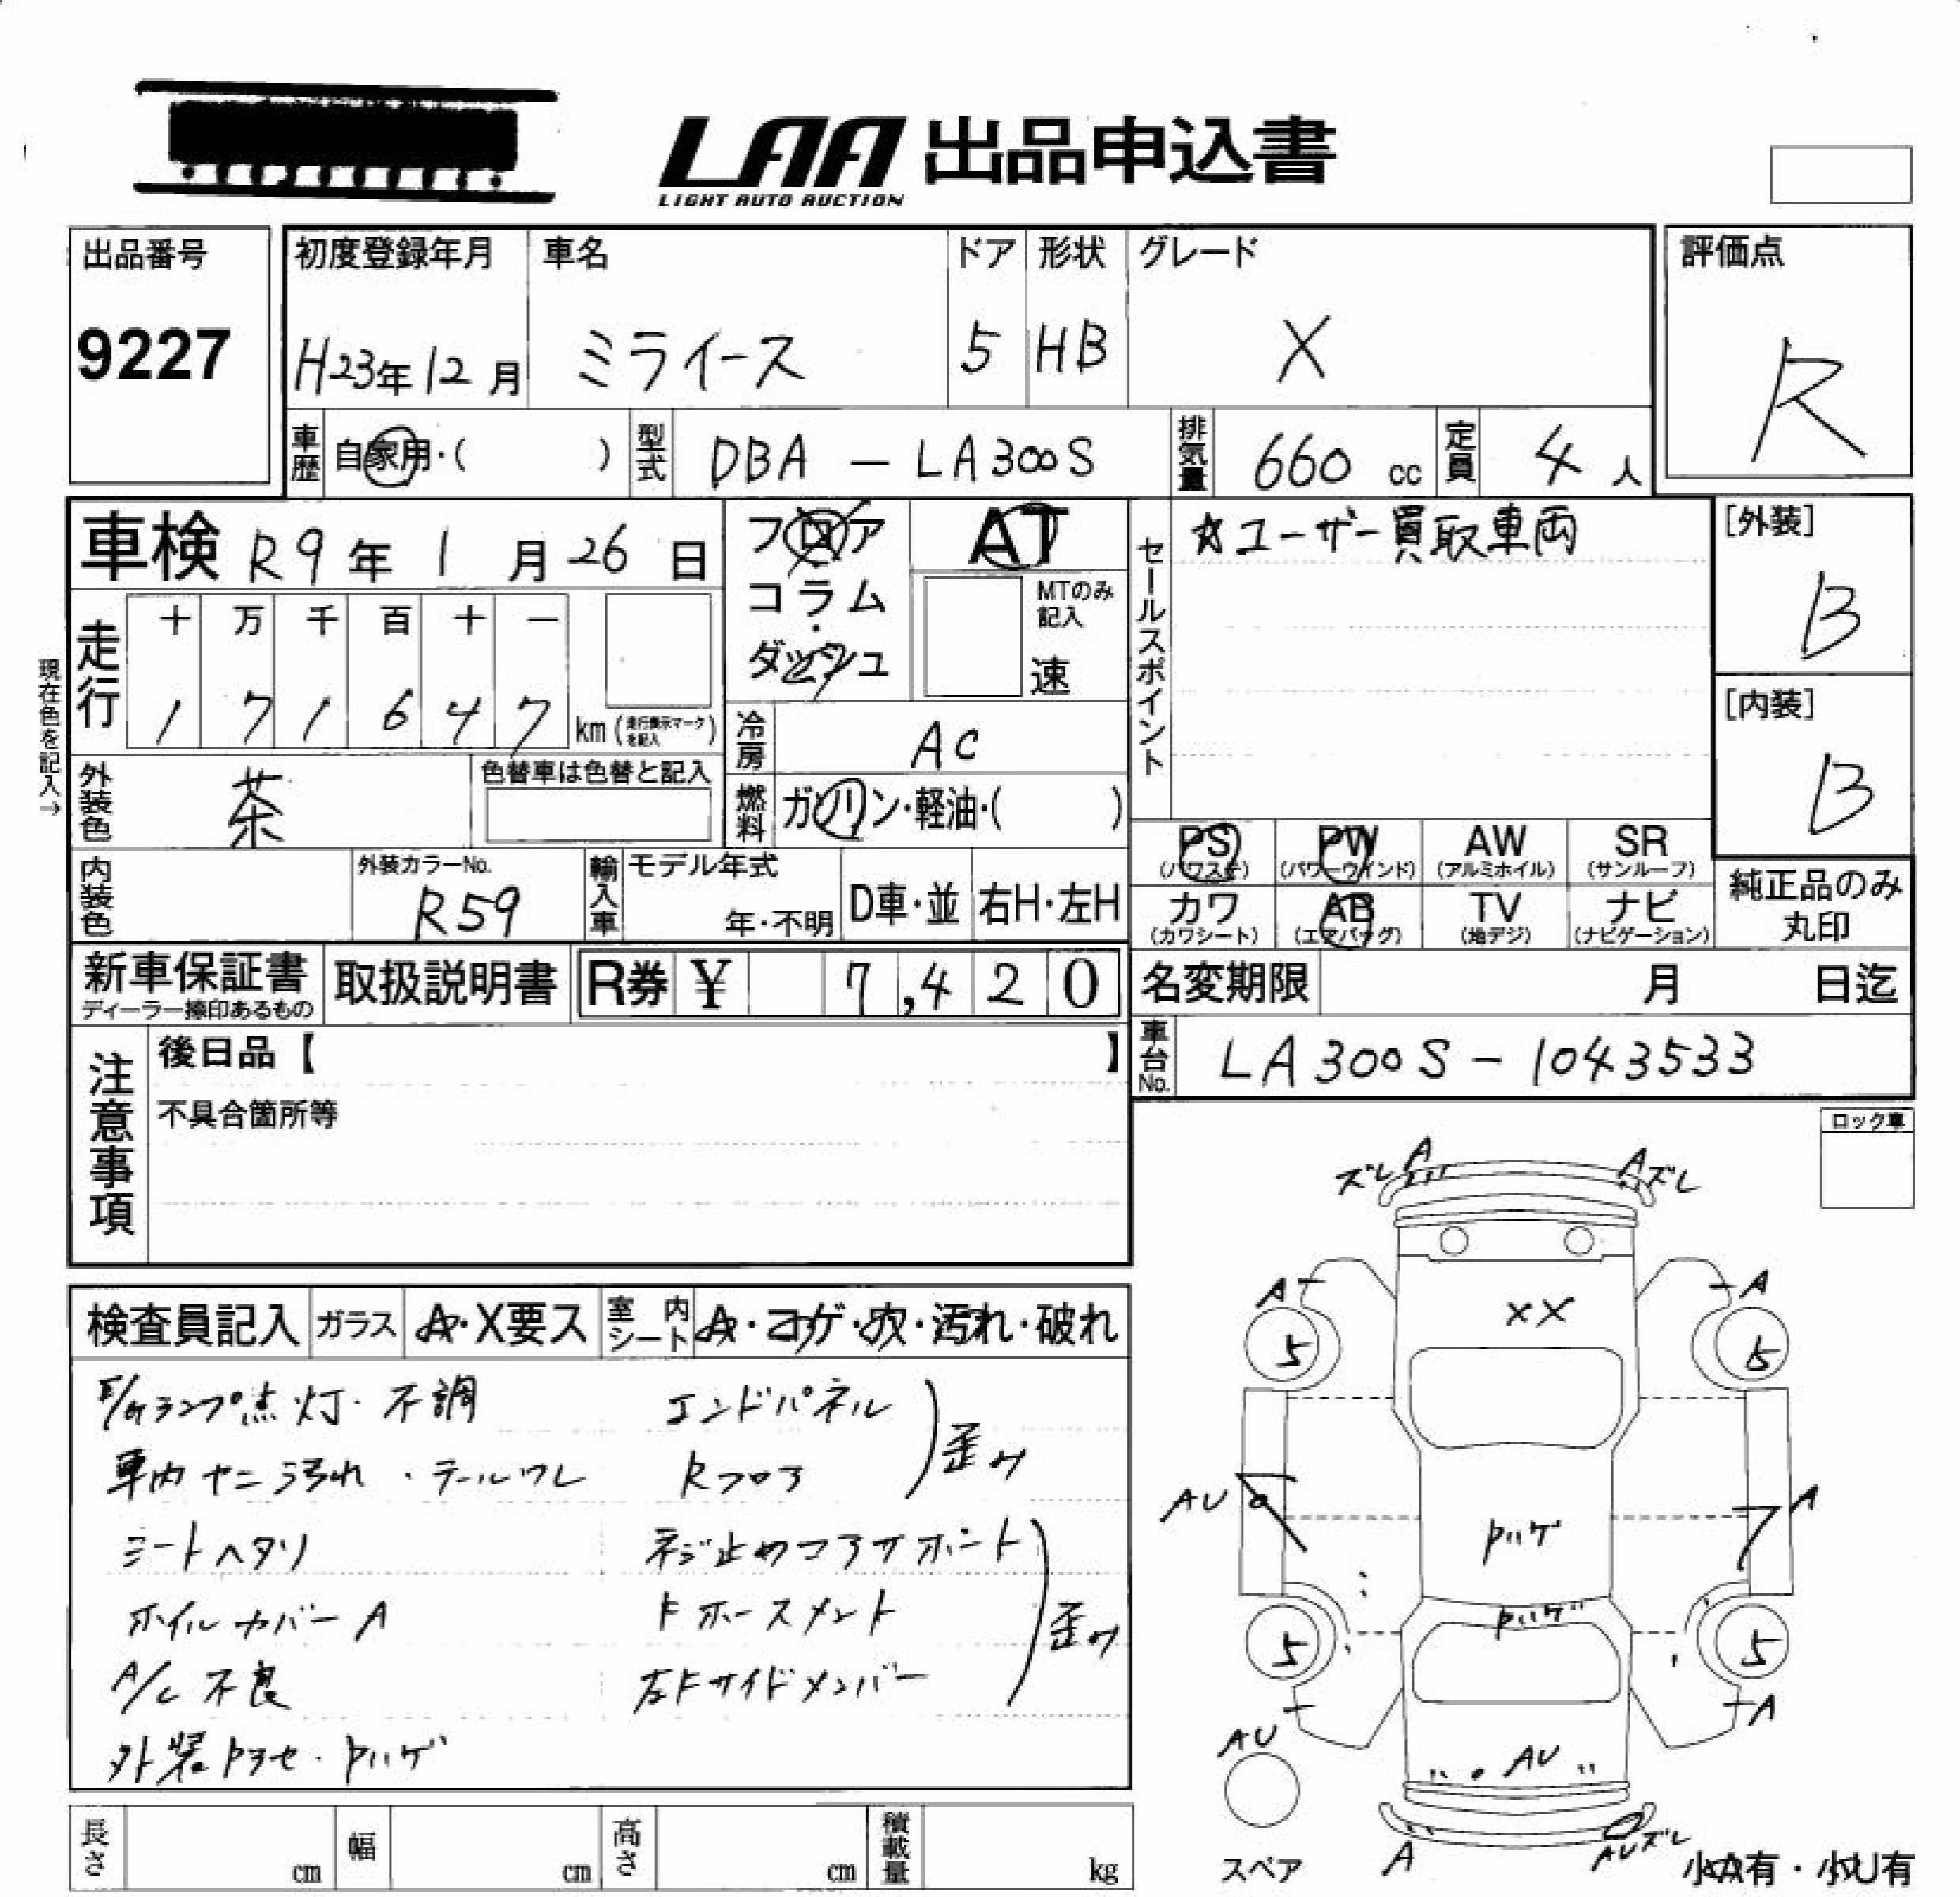 LAA 出品申込書
LIGHT AUTO AUCTION
出品番号 初度登録年月 車名 ドア 形状 グレード 評価点
9227 H23年12月 ミライース 5 HB X R
車歴 自家用・( ) 型式 DBA - LA300S 排気量 660 cc 定員 4人
車検 R9年1月26日 フロア AT セールスポイント ☆ユーザー買取車両 [外装]
B
コラム・ダッシュ MTのみ記入 速
現在色を記入→
走行 十 万 千 百 十 一
1 7 1 6 4 7 km (走行表示マークを記入)
[内装]
B
冷房 AC
外装色 茶 色替車は色替と記入 燃料 ガソリン・軽油・( )
PS (パワステ) PW (パワーウインド) AW (アルミホイル) SR (サンルーフ)
内装色 外装カラーNo. R59 輸入車 モデル年式 年・不明 D車・並 右H・左H
カワ (カワシート) AB (エアバッグ) TV (地デジ) ナビ (ナビゲーション) 純正品のみ丸印
新車保証書 取扱説明書 R券 ¥ 7,420 名変期限 月 日迄
ディーラー捺印あるもの
注意事項 後日品【 】 車台No. LA300S-1043533
不具合箇所等
ロック車
検査員記入 ガラス A・X要ス 室内シート A・コゲ・穴・汚れ・破れ
E/Gランプ点灯・不調 エンドパネル
車内ヤニ汚れ・テールワレ Rフロア 歪み
シートヘタリ ネジ止めコアサポート
ホイルカバーA Fホースメント 歪み
A/C 不良 左Fサイドメンバー
外装トヨセ・トハゲ
ズレ A A ズレ
A XX A
5 5
AU トハゲ A
トハゲ
5 5
A
AU AU
スペア A AUズレ 小A有・小U有
長さ cm 幅 cm 高さ cm 積載量 kg